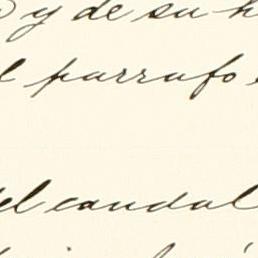 y de su
parrafo
del caudal